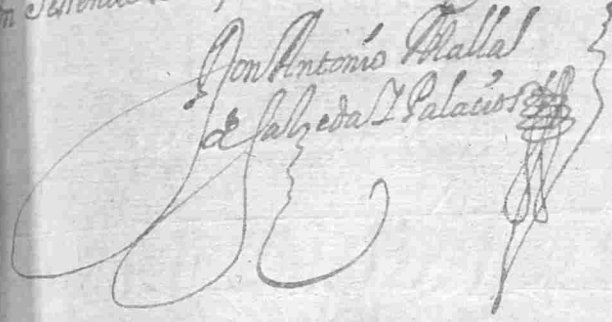 Don Antonio Mallal
de Salzeda I Palacios